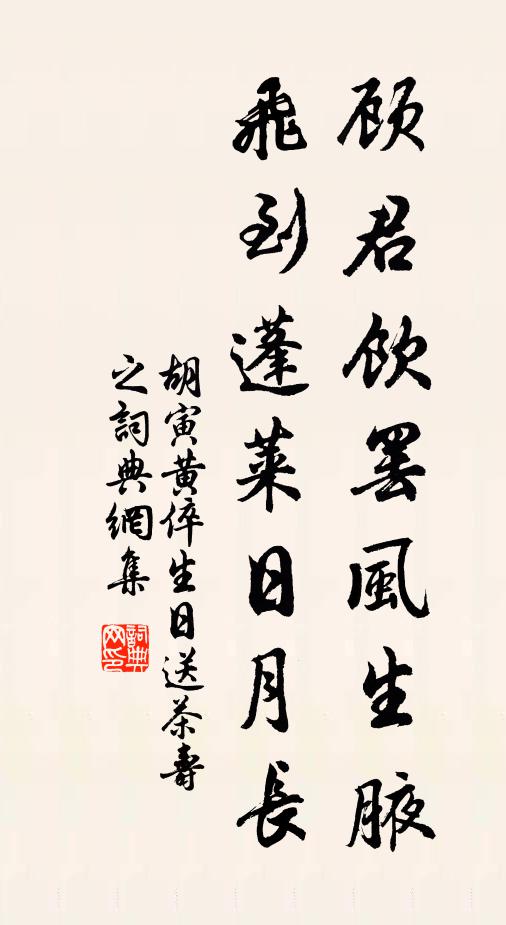 顾君飲罢風生腋
飛到蓬莱日月長
胡寅黄倅生日送茶壽
之詞典網集
詞典网印